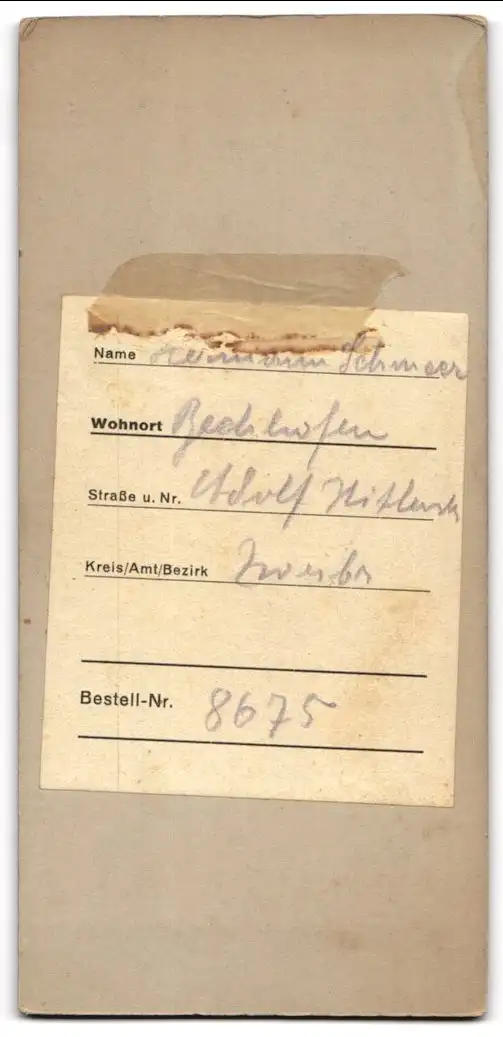 Name Hermann Schmeer
Wohnort Bechhofen
Straße u. Nr. Adolf Hitlerstr
Kreis/Amt/Bezirk Zweibr
Bestell-Nr. 8675